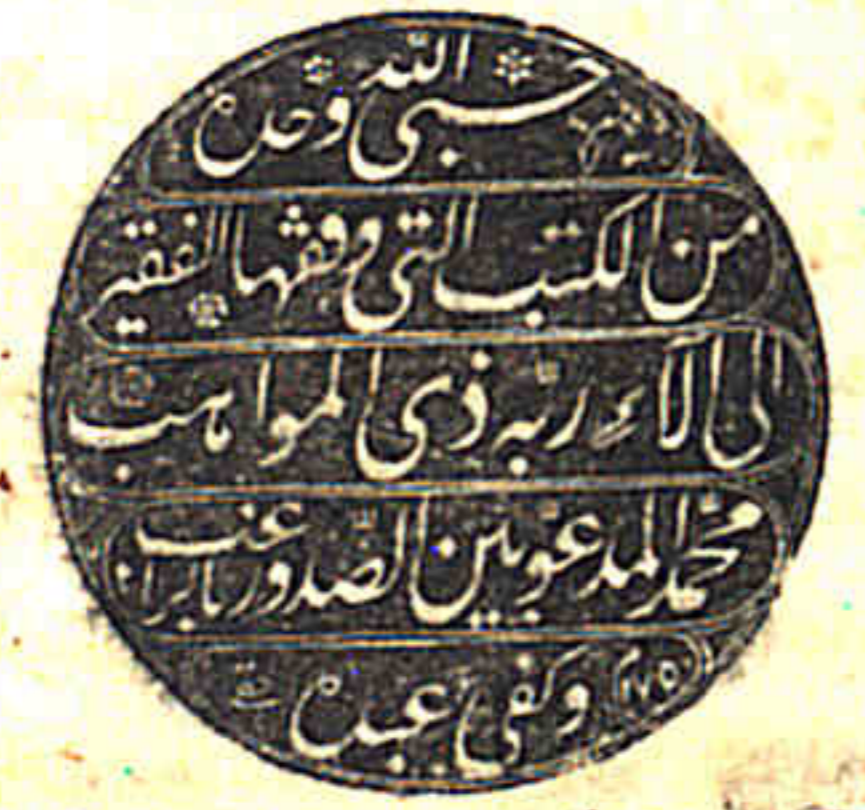 حسبي الله وحده
من الكتب التي وقفها الفقير
الى آلاء ربّه ذى المواهب
محمد المدعو بين الصّدور بالراغب
وكفى عبده